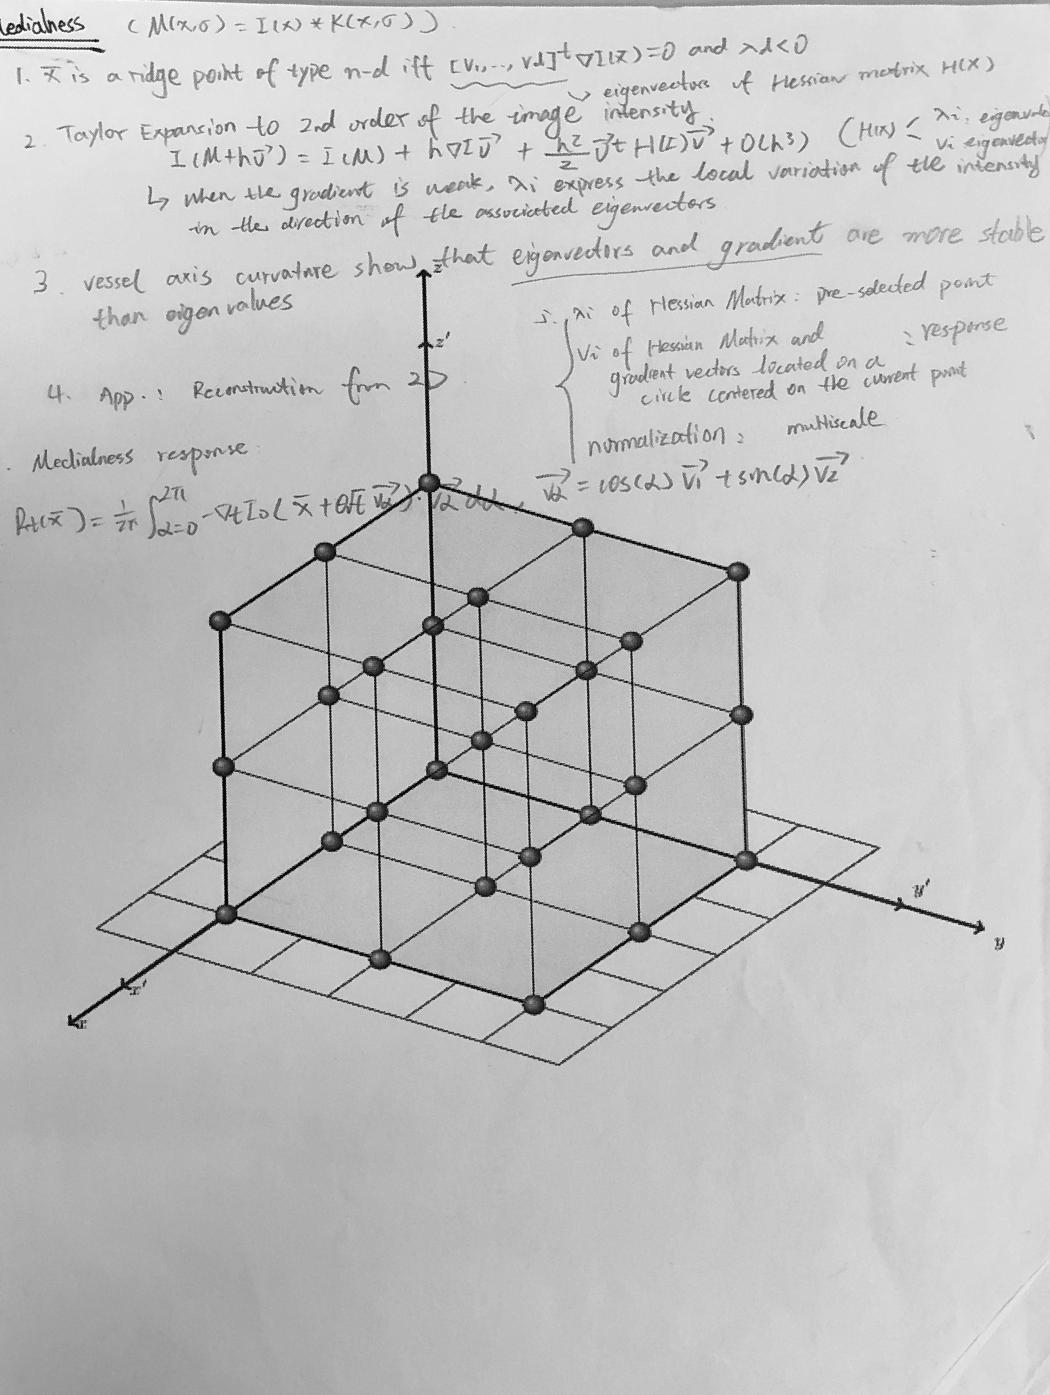 Medialness ( M(x,σ) = I(x) * K(x,σ) ).
1. x̄ is a ridge point of type n-d iff [v₁,..., vd]ᵗ ∇I(x̄)=0 and λd<0
↳ eigenvectors of Hessian matrix H(x)
2. Taylor Expansion to 2nd order of the image intensity.
I(M+hv⃗) = I(M) + h∇Iv⃗ + h²/2 v⃗ᵗ H(I)v⃗ + O(h³) (H(x) < λi: eigenvalue
vi eigenvector
↳ when the gradient is weak, λi express the local variation of the intensity
in the direction of the associated eigenvectors
3. vessel axis curvature show that eigenvectors and gradient are more stable
than eigenvalues
z
z'
4. App.: Reconstruction from 2D
5. λi of Hessian Matrix: pre-selected point
Vi of Hessian Matrix and
gradient vectors located on a : response
circle centered on the current point
normalization: multiscale
. Medialness response
Rt(x̄) = 1/2π ∫α=0^2π -∇t I₀( x̄ + θ√t v⃗α ) · v⃗α dα , v⃗α = cos(α) v⃗₁ + sin(α) v⃗₂
y'
y
x'
x